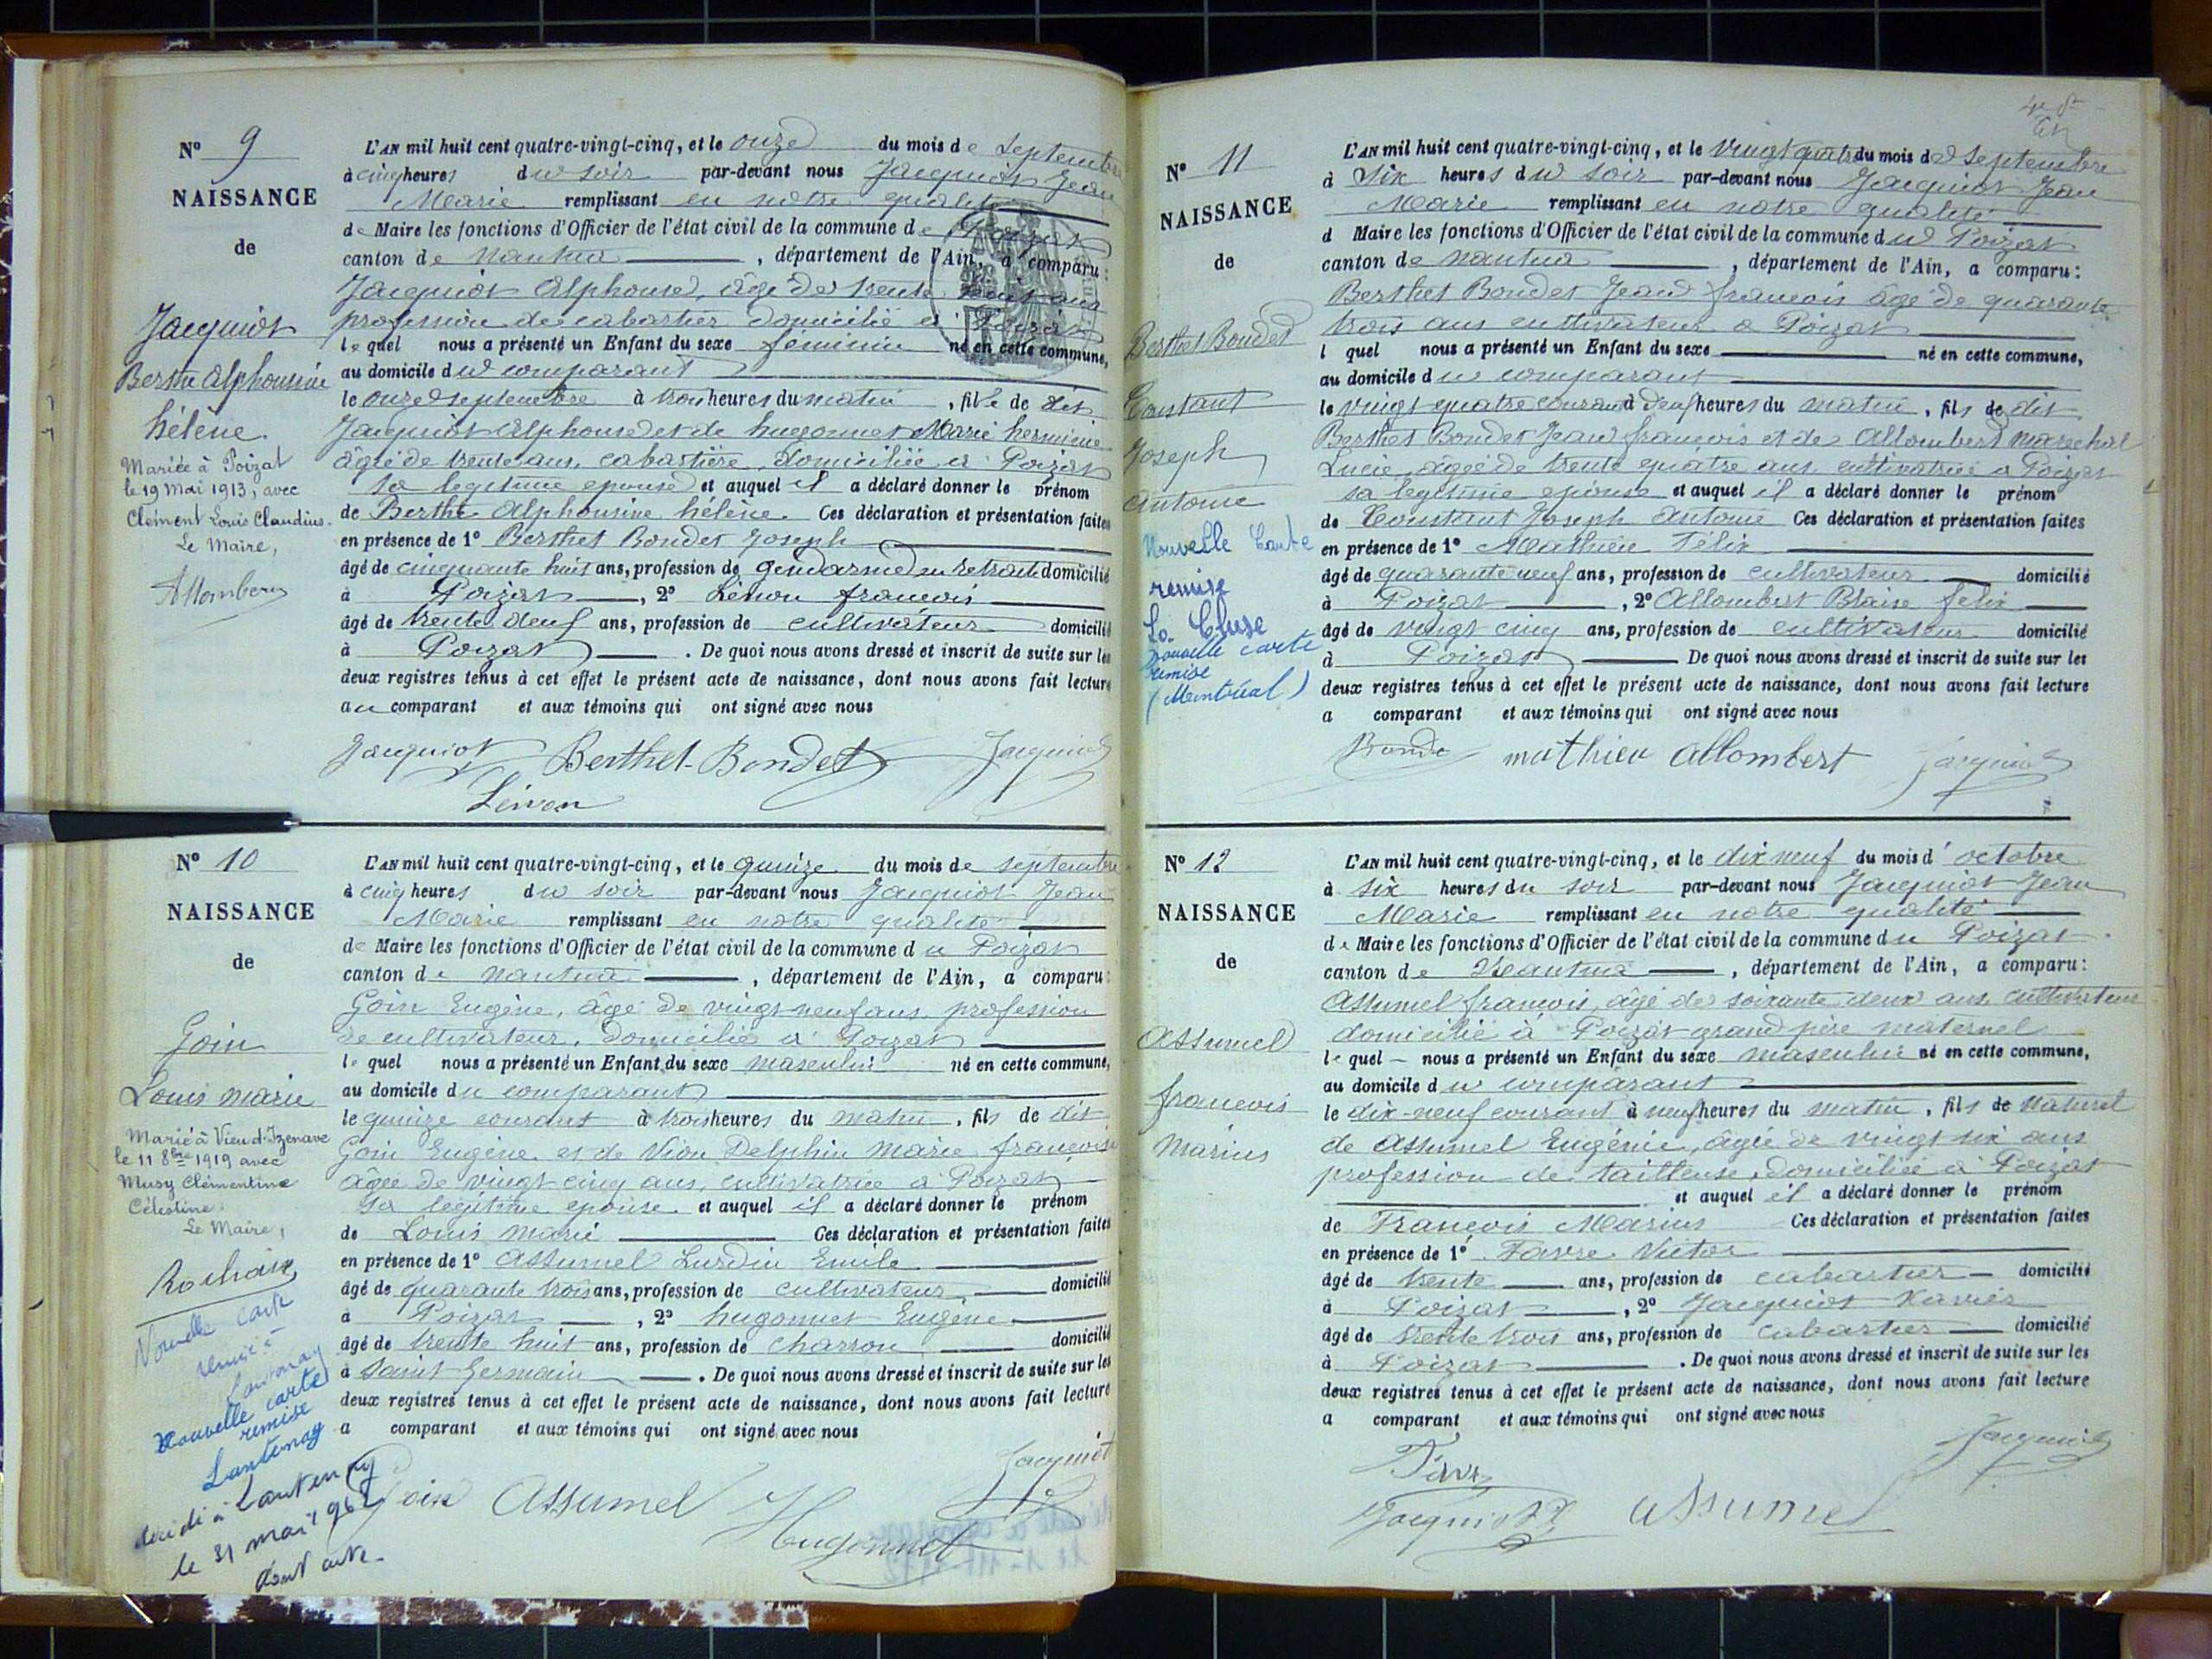 Nº 9
NAISSANCE
de
Jacquiot
Berthe Alphonsine
hélène
Mariée à Poizat
le 19 Mai 1913, avec
Clément Louis Claudius.
Le Maire,
Allombert
L'AN mil huit cent quatre-vingt-cinq, et le onze du mois de Septembre
à cinq heures du soir par-devant nous Jacquiot Jean
Marie remplissant en notre qualité
de Maire les fonctions d'Officier de l'état civil de la commune de Poizat
canton de Nantua, département de l'Ain, a comparu:
Jacquiot Alphonse, âgé de trente ans
profession de cabartier domicilié à Poizat
lequel nous a présenté un Enfant du sexe féminin né en cette commune,
au domicile du comparant
le onze septembre à trois heures du matin, fille de dit
Jacquiot Alphonse et de hugonnet Marie herminie
âgée de trente ans, cabartière, domiciliée à Poizat
sa legitime epouse et auquel il a déclaré donner le prénom
de Berthe Alphonsine hélène. Ces déclaration et présentation faites
en présence de 1º Berthet Bondet Joseph
âgé de cinquante huit ans, profession de gendarme en retraite domicilié
à Poizat, 2º Lévon francois
âgé de trente deuf ans, profession de cultivateur domicilié
à Poizat. De quoi nous avons dressé et inscrit de suite sur les
deux registres tenus à cet effet le présent acte de naissance, dont nous avons fait lecture
au comparant et aux témoins qui ont signé avec nous
Jacquiot Berthet-Bondet Jacquiot
Lévon
Nº 10
NAISSANCE
de
Goin
Louis marie
Marié à Vieu d'Izenave
le 11 8bre 1919 avec
Musy Clémentine
Célestine
Le Maire,
Rochaix
Nouvelle carte
remise à
Lantenay
Nouvelle carte
remise
Lantenay
décédé à Lantenay
le 31 mai 1962
dont acte.
L'AN mil huit cent quatre-vingt-cinq, et le quinze du mois de septembre
à cinq heures du soir par-devant nous Jacquiot Jean
Marie remplissant en notre qualité
de Maire les fonctions d'Officier de l'état civil de la commune du Poizat
canton de Nantua, département de l'Ain, a comparu:
Goin Eugène, âgé de vingt-neuf ans, profession
de cultivateur, domicilié à Poizat
lequel nous a présenté un Enfant du sexe masculin né en cette commune,
au domicile du comparant
le quinze courant à trois heures du matin, fils de dit
Goin Eugène et de Vion Delphin Marie françoise
âgée de vingt cinq ans, cultivatrice à Poizat
sa légitime epouse et auquel il a déclaré donner le prénom
de Louis marie Ces déclaration et présentation faites
en présence de 1º Assumel Lurdin Emile
âgé de quarante trois ans, profession de cultivateur domicilié
à Poizat, 2º hugonnet Eugène
âgé de trente huit ans, profession de charron domicilié
à Saint Germain. De quoi nous avons dressé et inscrit de suite sur les
deux registres tenus à cet effet le présent acte de naissance, dont nous avons fait lecture
a comparant et aux témoins qui ont signé avec nous
Jacquiot
Goin Assumel Hugonnet
Nº 11
NAISSANCE
de
Berthet Bondet
Constant
Joseph
Antoine
Nouvelle Carte
remise
La Cluse
nouvelle carte
remise
(Montréal)
L'AN mil huit cent quatre-vingt-cinq, et le vingt quatre du mois de Septembre
à six heures du soir par-devant nous Jacquiot Jean
Marie remplissant en notre qualité
d Maire les fonctions d'Officier de l'état civil de la commune du Poizat
canton de Nantua, département de l'Ain, a comparu:
Berthet Bondet Jean françois âgé de quarante
trois ans cultivateur a Poizat
l quel nous a présenté un Enfant du sexe né en cette commune,
au domicile du comparant
le vingt quatre courant à deuf heures du matin, fils de dit
Berthet Bondet Jean françois et de Allombert maréchal
Lucie, âgée de trente quatre ans, cultivatrice a Poizat
sa legitime epouse et auquel il a déclaré donner le prénom
de Constant Joseph Antoine Ces déclaration et présentation faites
en présence de 1º Mathieu Félix
âgé de quarante neuf ans, profession de cultivateur domicilié
à Poizat, 2º Allombert Blaise felix
âgé de vingt cinq ans, profession de cultivateur domicilié
à Poizat De quoi nous avons dressé et inscrit de suite sur les
deux registres tenus à cet effet le présent acte de naissance, dont nous avons fait lecture
a comparant et aux témoins qui ont signé avec nous
Bondet mathieu allombert Jacquiot
Nº 12
NAISSANCE
de
Assumel
francois
Marius
L'AN mil huit cent quatre-vingt-cinq, et le dix neuf du mois d'octobre
à six heures du soir par-devant nous Jacquiot Jean
Marie remplissant en notre qualité
de Maire les fonctions d'Officier de l'état civil de la commune du Poizat
canton de Nantua, département de l'Ain, a comparu:
Assumel francois, âgé de soixante deux ans, cultivateur
domicilié à Poizat grand père maternel
lequel nous a présenté un Enfant du sexe masculin né en cette commune,
au domicile du comparant
le dix-neuf courant à neuf heures du matin, fils de Naturel
de Assumel Eugénie, âgée de vingt six ans
profession de tailleuse, domiciliée à Poizat
et auquel il a déclaré donner le prénom
de François Marius Ces déclaration et présentation faites
en présence de 1º Favre Victor
âgé de trente ans, profession de cabartier domicilié
à Poizat, 2º Jacquiot Xavier
âgé de trente trois ans, profession de cabartier domicilié
à Poizat. De quoi nous avons dressé et inscrit de suite sur les
deux registres tenus à cet effet le présent acte de naissance, dont nous avons fait lecture
a comparant et aux témoins qui ont signé avec nous
Favre Jacquiot
Jacquiot X Assumel